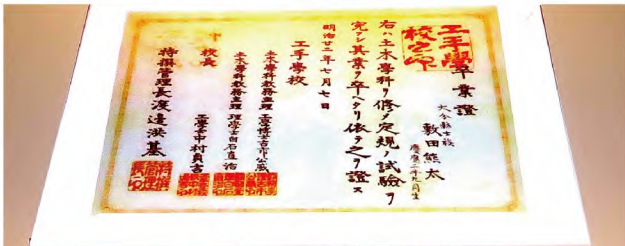 工手學校之印
卒業證
大分縣士族
數田熊太
慶應三年九月生
右ハ土木學科ヲ修メ定規ノ試驗ヲ
完フシ其業ヲ卒ヘタリ依テ之ヲ證ス
明治廿二年七月七日
工手學校
土木學科教務主理 工學博士古市公威
土木學科教務主理 理學士白石直治
校長 工學士中村貞吉
特撰管理長渡邊洪基